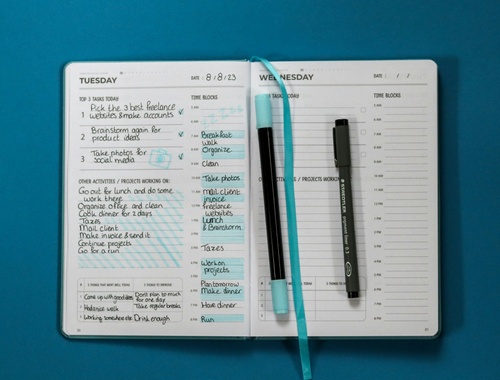 TUESDAY
DATE: 8/8/23
TOP 3 TASKS TODAY
TIME BLOCKS
1 Pick the 3 best freelance
websites & make accounts
2 Brainstorm again for
product ideas
3 Take photos for
social media
OTHER ACTIVITIES / PROJECTS WORKING ON:
Go out for lunch and do some
work there
Organize office and clean
Cook dinner for 2 days
Taxes
Mail client
Make invoice & send it
Continue projects
Go for a run
Breakfast
walk
Organize
clean
Take photos
Mail client
invoice
freelance
websites
Lunch
& Brainstorm
Taxes
Work on
projects
Plan tomorrow
Make dinner
Have dinner
Run
3 THINGS THAT WENT WELL TODAY
3 THINGS TO IMPROVE
Come up with good ideas
Freelance work
Working somewhere etc
Don't plan to much
for one day
Take regular breaks
Drink enough
WEDNESDAY
DATE: / /
TIME BLOCKS
OTHER ACTIVITIES / PROJECTS WORKING ON:
STAEDTLER
pigment liner 0.3